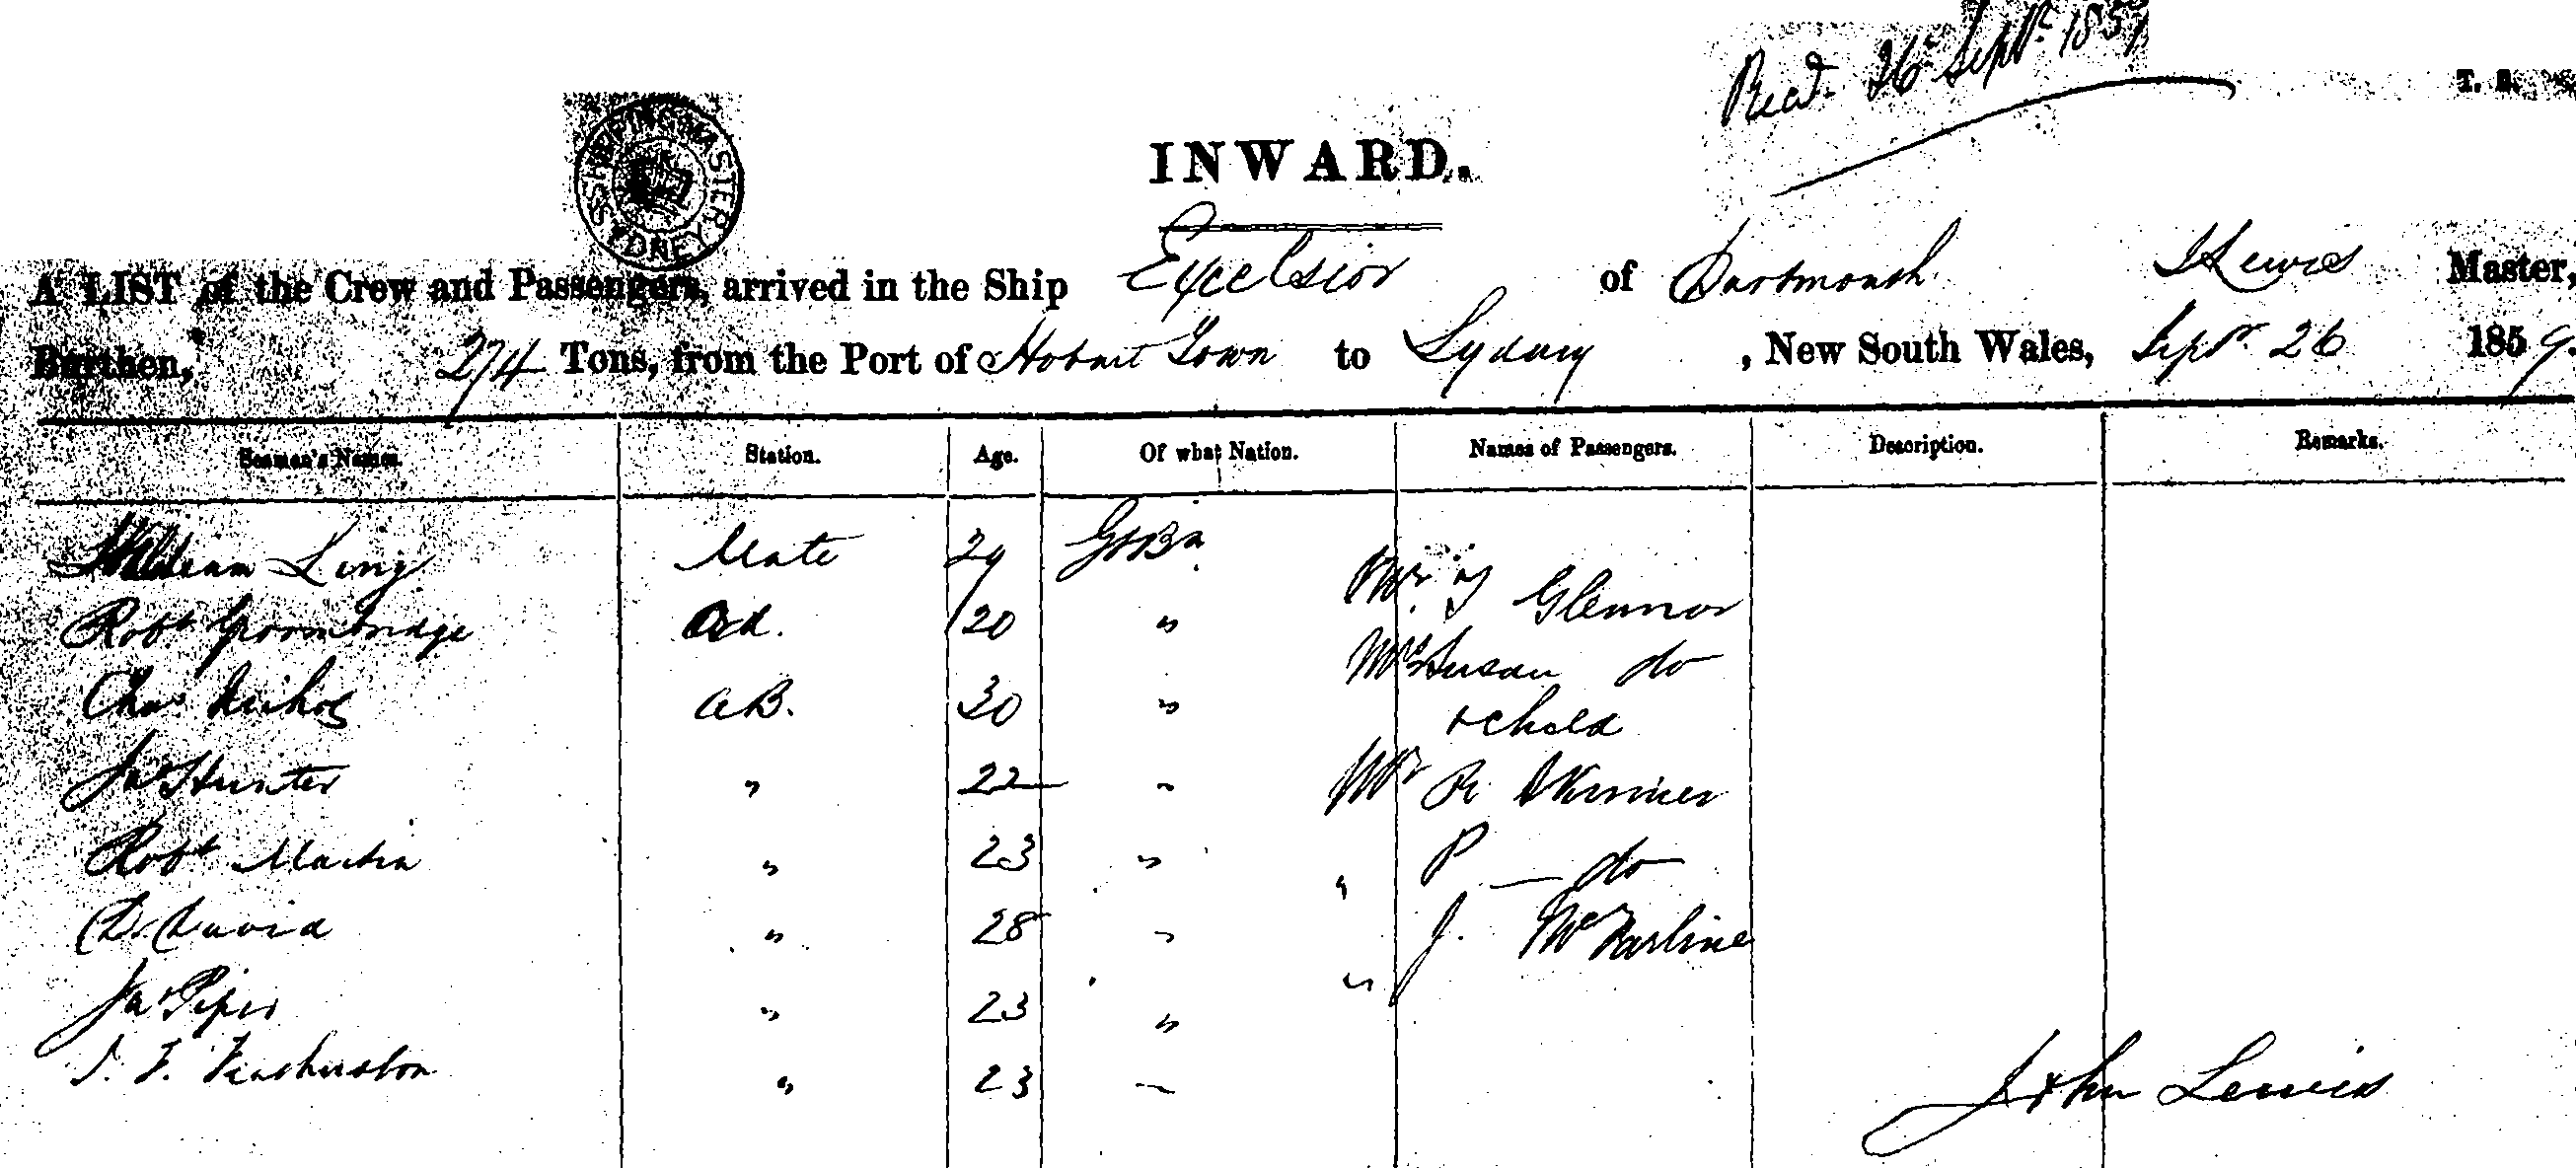 Recd. 26 Septr. 1859
T. B.
SHIPPING MASTER SYDNEY
INWARD.
A LIST of the Crew and Passengers, arrived in the Ship Excelsior of Dartmouth J Lewis Master,
Burthen, 274 Tons, from the Port of Hobart Town to Sydney, New South Wales, Septr 26 1859.
Seamen's Names. Station. Age. Of what Nation. Names of Passengers. Description. Remarks.
William Ling Mate 29 Gt Bn Mr. J Glennor
Robt Groombridge Ord. 20 " Mrs Susan do
Chas Nichos A.B. 30 " & child
Jas Hunter " 22 " Mr R Skinner
Robt Martin " 23 " " P — do
D. David " 28 " " J. McFarline
Jas Piper " 23 "
J. F. Feacherston " 23 "
John Lewis